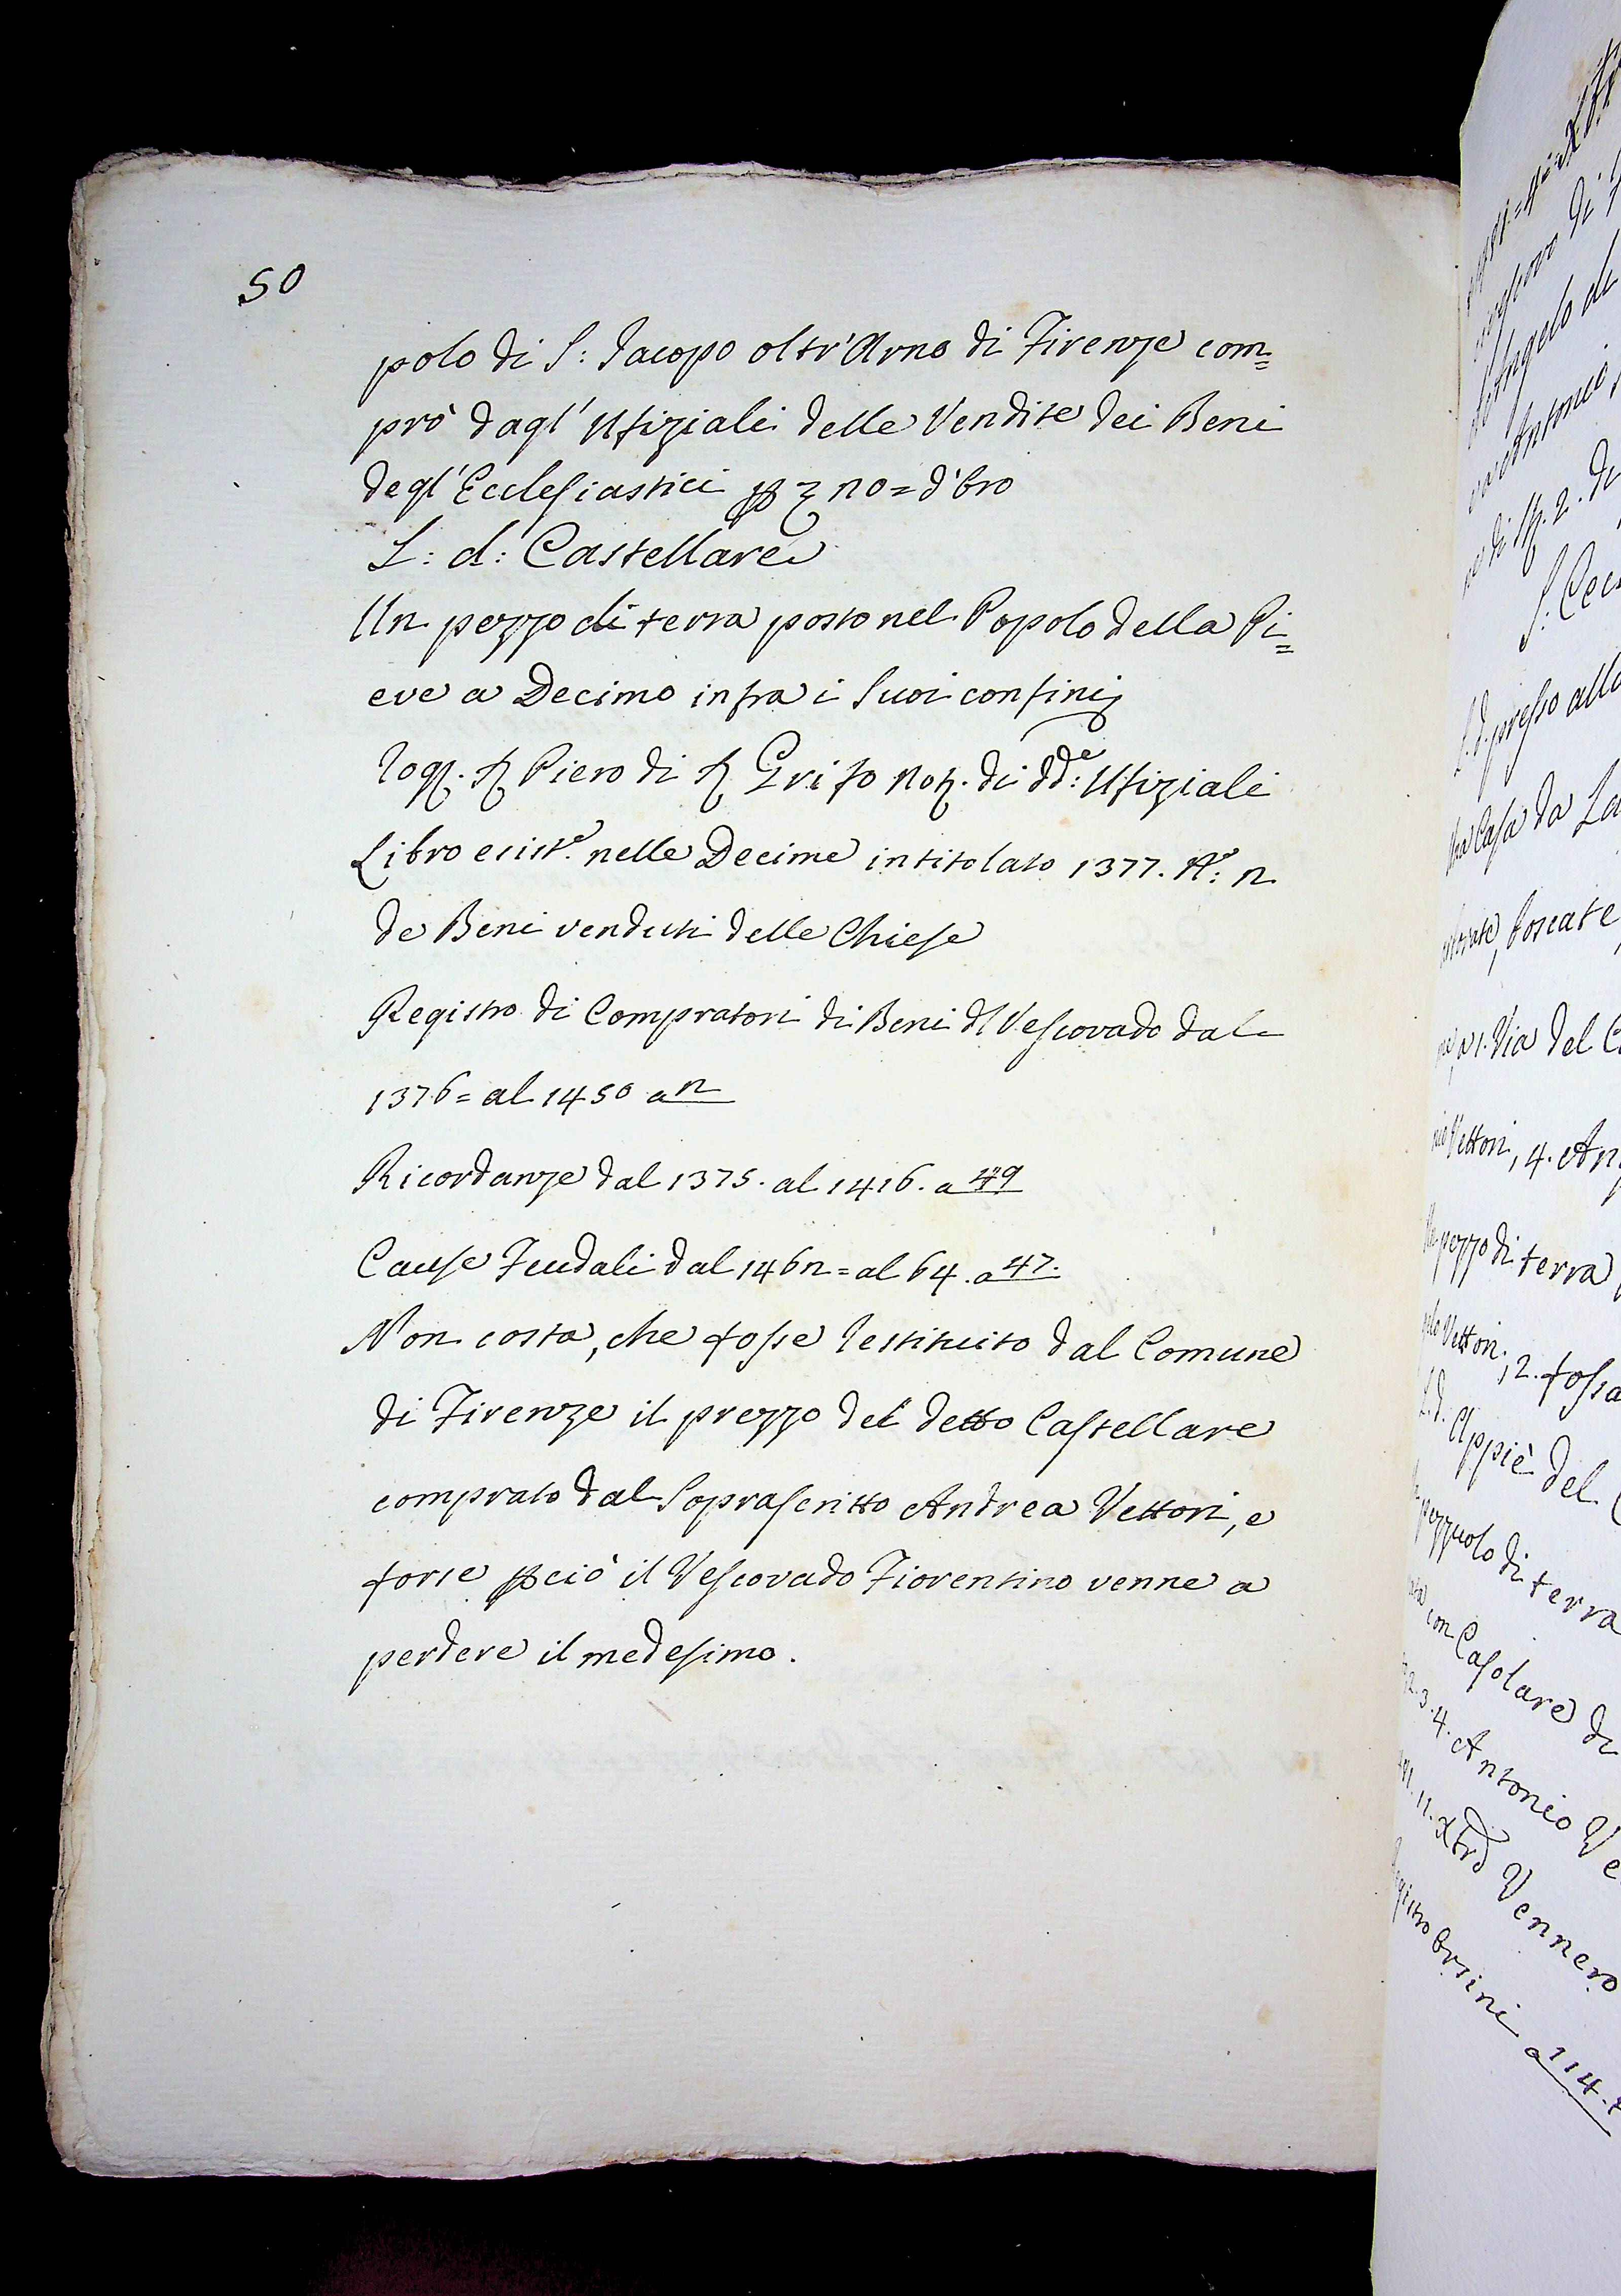 50
polo di S: Jacopo oltr'Arno di Firenze com=
prò dagl' Ufiziali delle Vendite dei Beni
degl' Ecclesiastici d'Oro
L: d: Castellare
Un pezzo di terra posto nel Popolo della Pi=
eve a Decimo infra i Suoi confini
Rog. Piero di Grifo Not. di dd:e Ufiziali
Libro esist.e nelle Decime intitolato 1377. N.o: 2
de Beni venduti delle Chiese
Registro di Compratori di Beni dl Vescovado dal
1376 = al 1450 a 2
Ricordanze dal 1375. al 1416. a 49
Cause Feudali dal 1462 = al 64. a 47.
Non costa, che fosse restituito dal Comune
di Firenze il prezzo del detto Castellare
comprato dal Soprascritto Andrea Vettori, e
forse pciò il Vescovado Fiorentino venne a
perdere il medesimo.
Angelo di
Antonio,
di 2. di
S. Ceci
L. d. presso alla
Casa da La
boscate,
a 1. Via del C
Vettori, 4. An
pezzo di terra
Vettori, 2. fossa
L. d. Appiè del C
pezzuolo di terra
con Casolare di
2. 3. 4. Antonio Ve
Vennero
Orsini a 114.